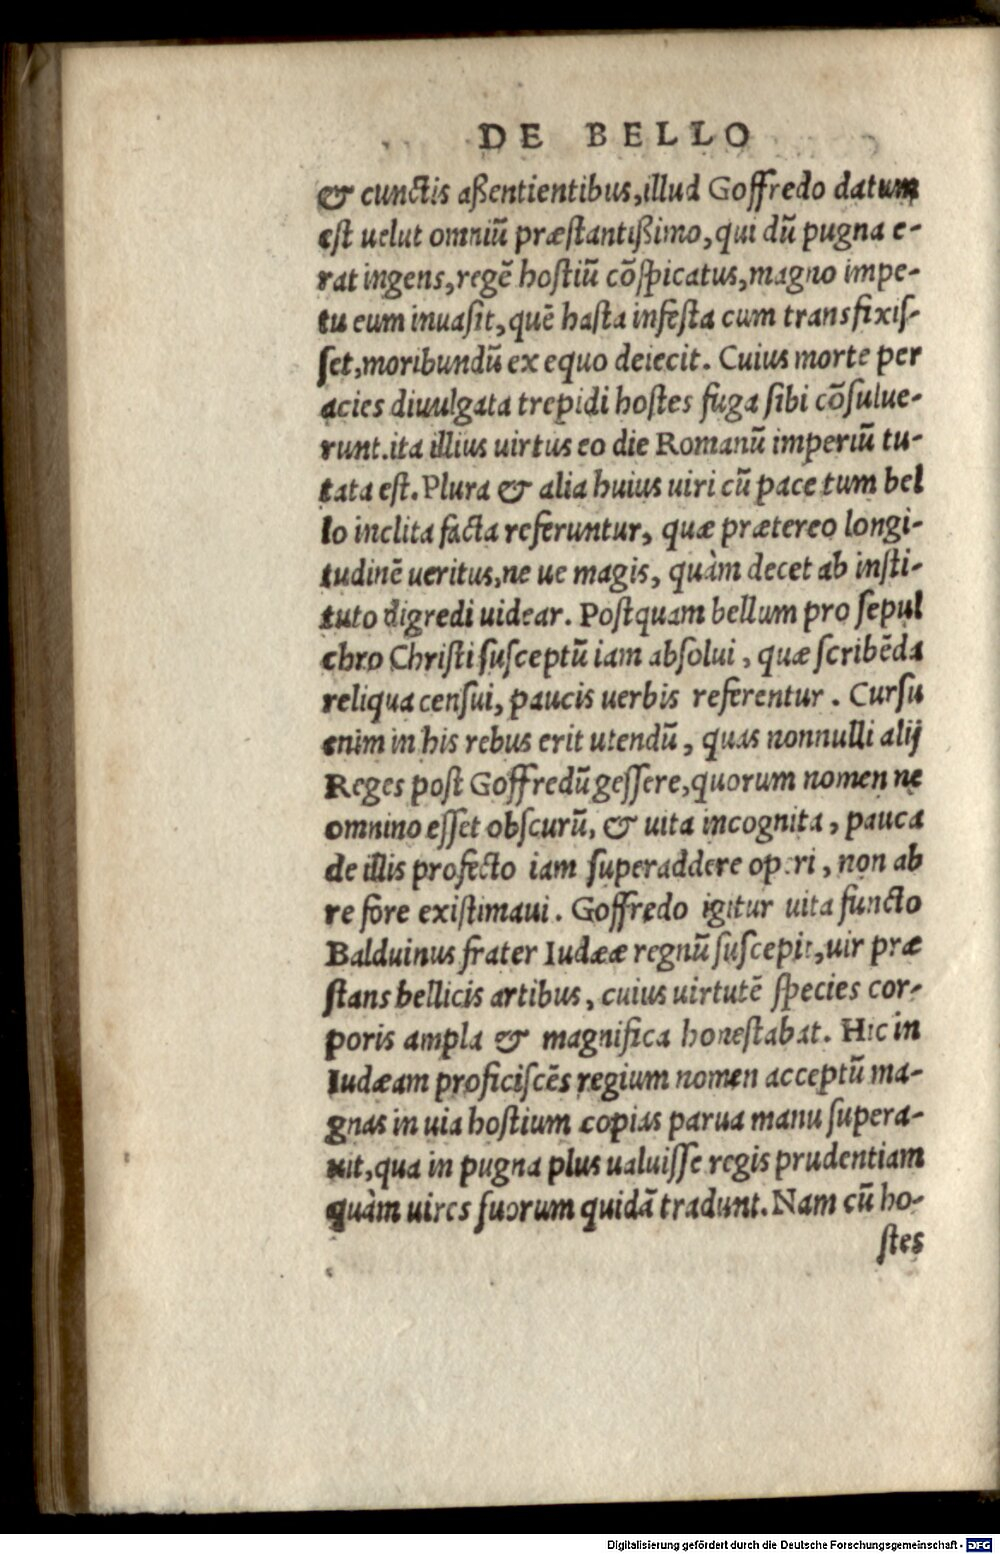 DE BELLO
& cunctis aßentientibus, illud Goffredo datum
est uelut omniũ præstantißimo, qui dũ pugna e-
rat ingens, regẽ hostiũ cõspicatus, magno impe-
tu eum inuasit, quẽ hasta infesta cum transfixis-
set, moribundũ ex equo deiecit. Cuius morte per
acies diuulgata trepidi hostes fuga sibi cõsulue-
runt. ita illius uirtus eo die Romanũ imperiũ tu-
tata est. Plura & alia huius uiri cũ pace tum bel
lo inclita facta referuntur, quæ prætereo longi-
tudinẽ ueritus, ne ue magis, quàm decet ab insti-
tuto digredi uidear. Postquam bellum pro sepul
chro Christi susceptũ iam absolui, quæ scribẽda
reliqua censui, paucis uerbis referentur. Cursu
enim in his rebus erit utendũ, quas nonnulli alij
Reges post Goffredũ gessere, quorum nomen ne
omnino esset obscurũ, & uita incognita, pauca
de illis profecto iam superaddere operi, non ab
re fore existimaui. Goffredo igitur uita functo
Balduinus frater Iudææ regnũ suscepit, uir præ
stans bellicis artibus, cuius uirtutẽ species cor-
poris ampla & magnifica honestabat. Hic in
Iudæam proficiscẽs regium nomen acceptũ ma-
gnas in uia hostium copias parua manu supera-
uit, qua in pugna plus ualuisse regis prudentiam
quàm uires suorum quidã tradunt. Nam cũ ho-
stes
Digitalisierung gefördert durch die Deutsche Forschungsgemeinschaft - DFG